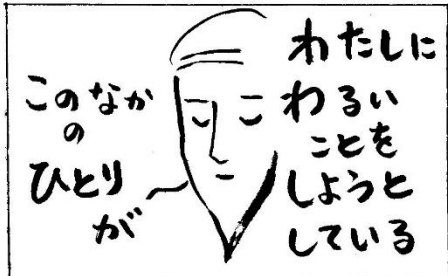 このなか
の
ひとり
が
わたしに
わるい
ことを
しようと
している